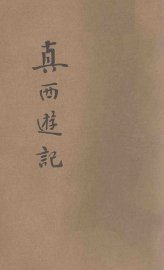 真西遊記